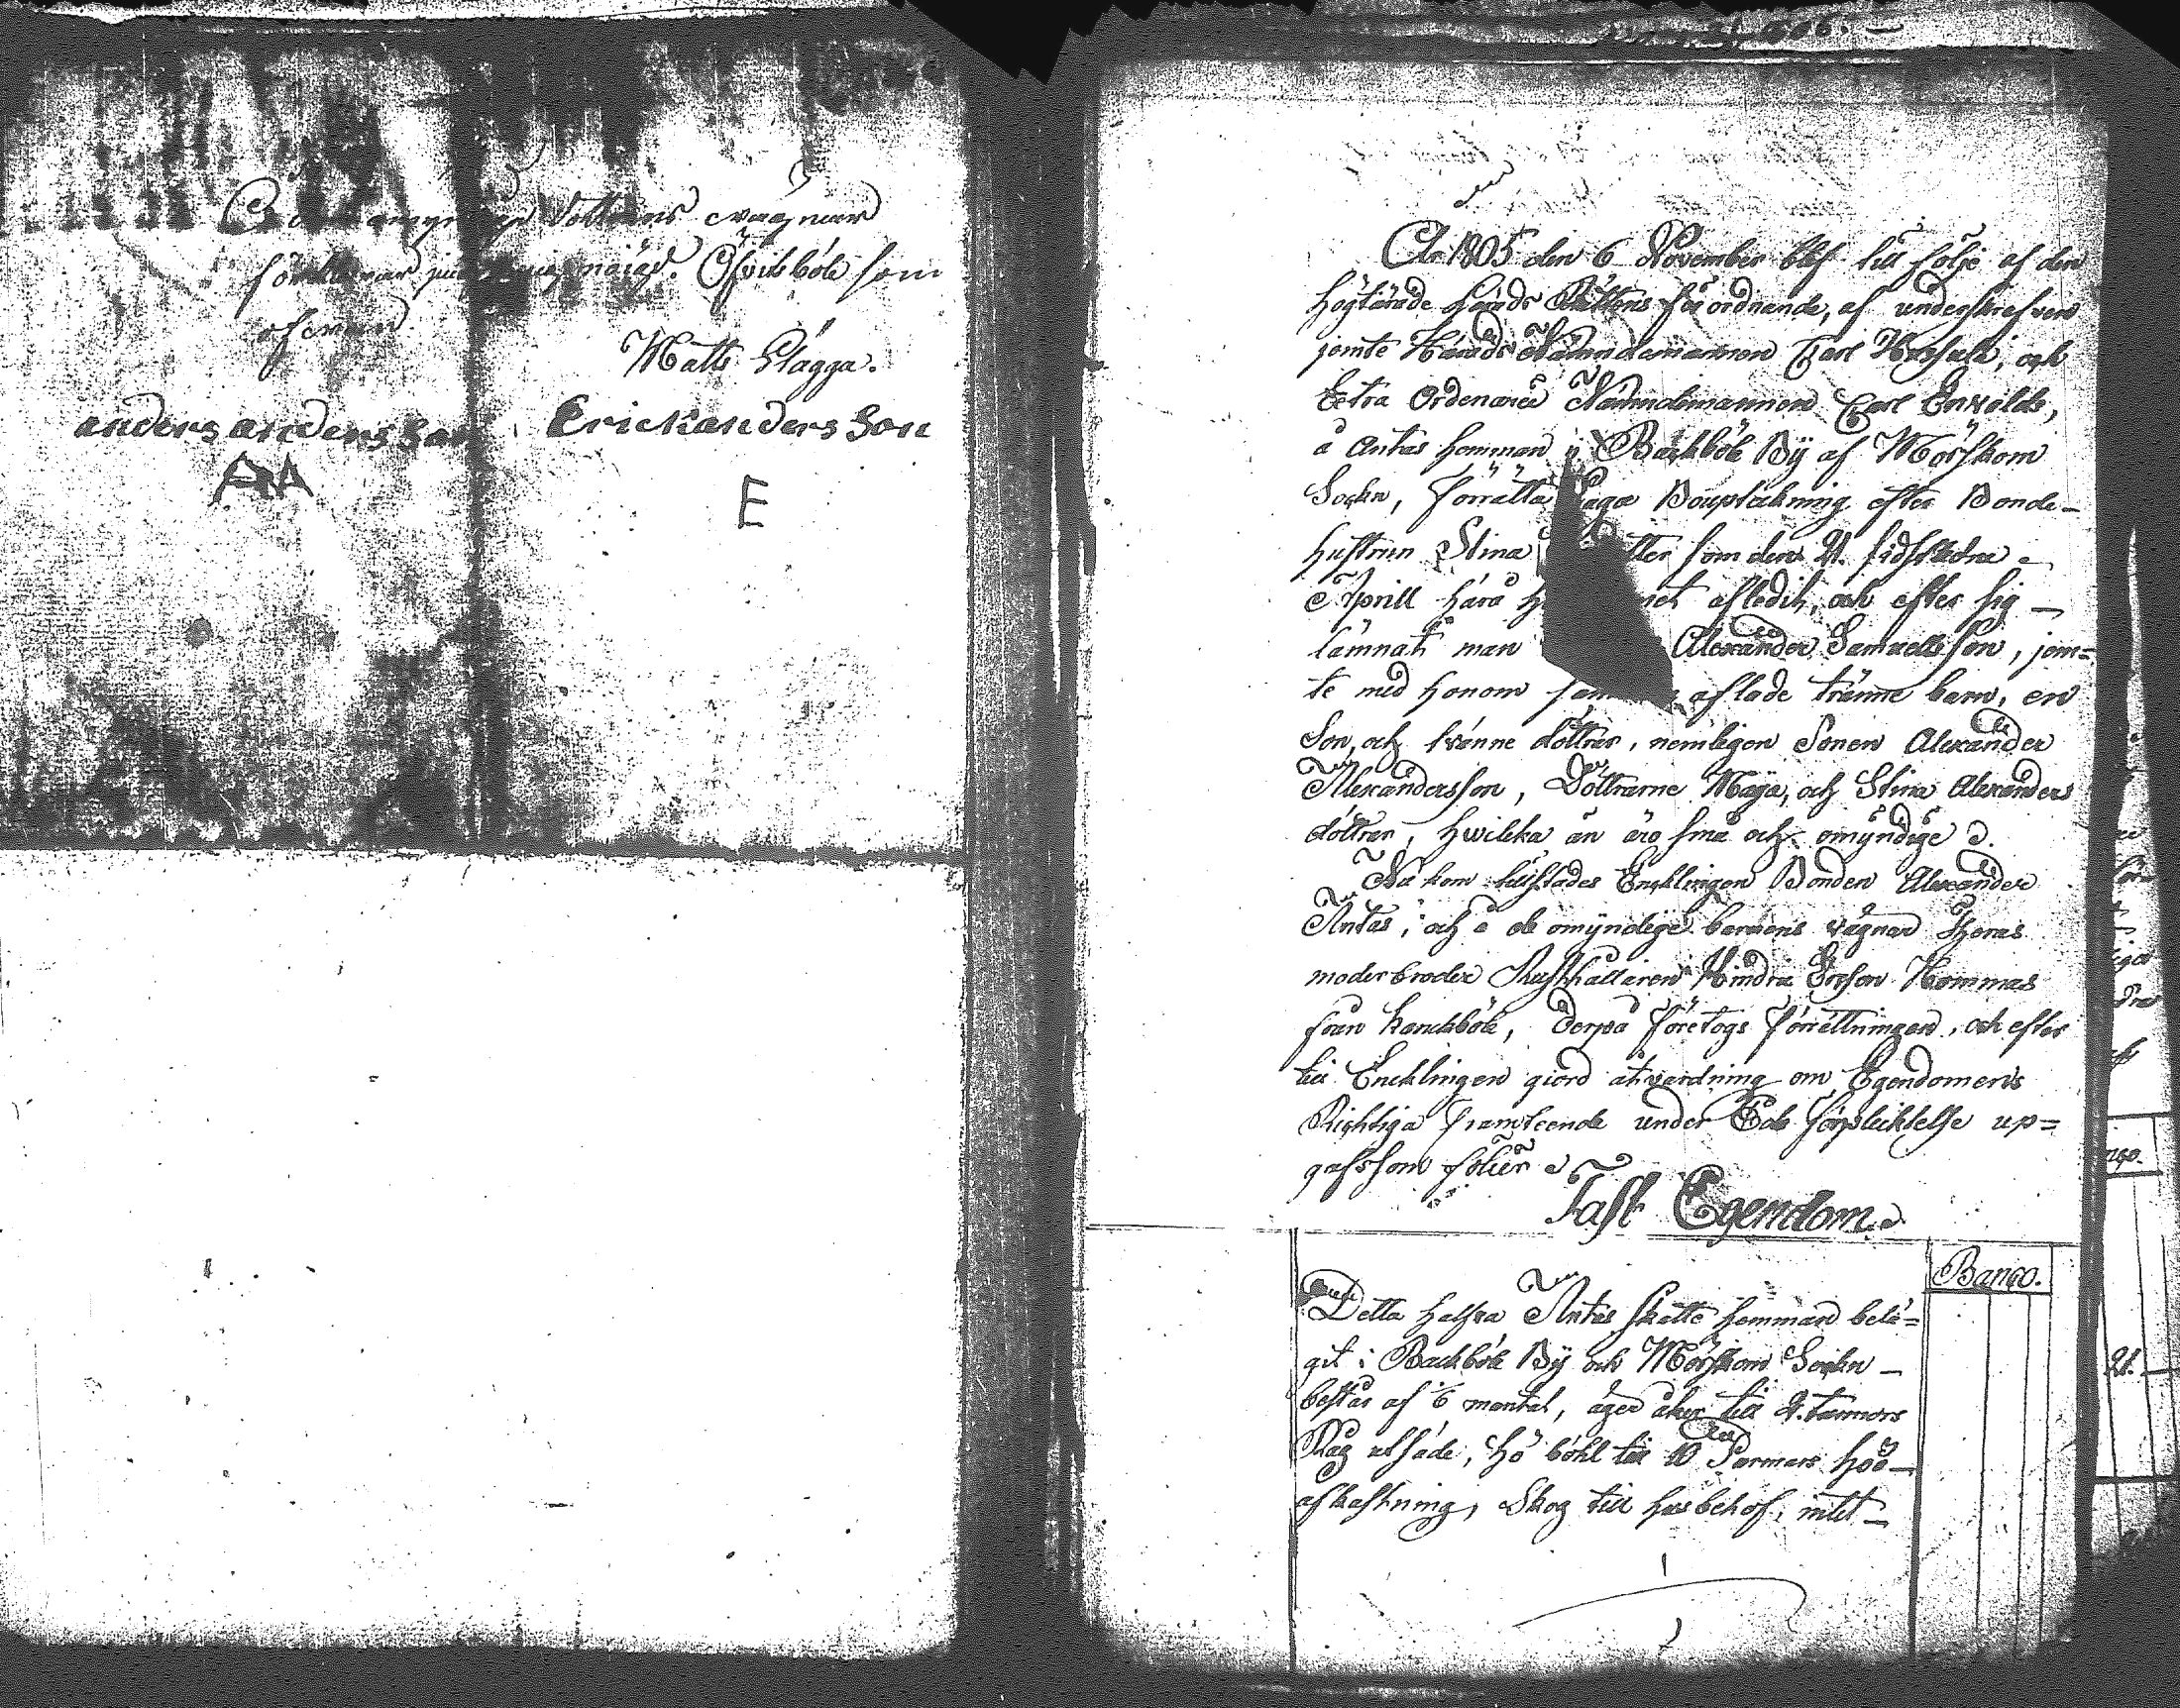 omyndige dottrens vägnar
Öfvikböle som
ofvan.
Matts Slägga.
anders anders Son
Erick anders Son
AA
E
Åhr 1805 den 6 November blef till följe af den
högtärade härads Rättens förordnande, af underskrefven
jemte Härads Nämndemannen Carl Hassula, och
Extra Ordenarie Nämndemannen Carl Envalds,
å Antas hemman i Backböle By af Mörskom
Sockn, förrätta Laga Bouptekning efter Bonde-
hustrun Stina som den 21. sidstledne
Aprill hära afledit, och efter sig
lämnat man Alexander Samuelsson, jem=
te med honom aflade tränne barn, en
Son, och tvänne döttrar, nemligen Sonen Alexander
Alexandersson, Döttrarne Maja, och Stina Alexanders
döttrar, hwilka än äro små och omyndige.
Nu kom tillstädes Encklingen Bonden Alexander
Antas, och å de omyndige barnens vägnar theras
moderbroder Rusthållaren Hindric Ersson Hommas
från Kanckböle, derpå företogs förrättningen, och efter
till Encklingen giord åtvardning om Egendomens
Richtiga framteende under Eds förpliktelse up=
gafs som följer
Fast Egendom.
Banco.
Detta halfva Antas skatte hemman belä=
git i Backböle By och Mörskom Sockn
består af 1/6 mantal, äger åker till 2. tunnors
Råg utsäde, hö böhl till 10 Parmars höö
afkastning, Skog till husbehof, intet